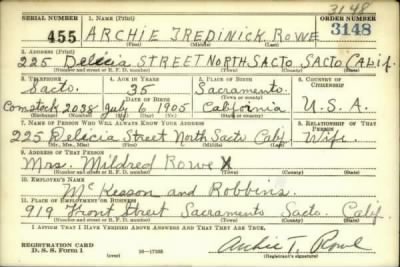 3148
SERIAL NUMBER 1. NAME (Print) ORDER NUMBER
455 ARCHIE TREDINICK ROWE 3148
(First) (Middle) (Last)
2. ADDRESS (Print)
225 Delicia STREET NORTH SACTO SACTO Calif.
(Number and street or R. F. D. number) (Town) (County) (State)
3. TELEPHONE 4. AGE IN YEARS 5. PLACE OF BIRTH 6. COUNTRY OF CITIZENSHIP
Sacto. 35 Sacramento.
DATE OF BIRTH (Town or county)
Comstock 2038 July 6 1905 California U.S.A.
(Exchange) (Number) (Mo.) (Day) (Yr.) (State or country)
7. NAME OF PERSON WHO WILL ALWAYS KNOW YOUR ADDRESS 8. RELATIONSHIP OF THAT PERSON
225 Delicia Street North Sacto Calif. Wife.
(Mr., Mrs., Miss) (First) (Middle) (Last)
9. ADDRESS OF THAT PERSON
Mrs. Mildred Rowe X
(Number and street or R. F. D. number) (Town) (County) (State)
10. EMPLOYER'S NAME
McKesson and Robbins.
11. PLACE OF EMPLOYMENT OR BUSINESS
919 Front Street Sacramento Sacto. Calif.
(Number and street or R. F. D. number) (Town) (County) (State)
I AFFIRM THAT I HAVE VERIFIED ABOVE ANSWERS AND THAT THEY ARE TRUE.
REGISTRATION CARD
D. S. S. Form 1 (over) Archie T. Rowe
(Registrant's signature)